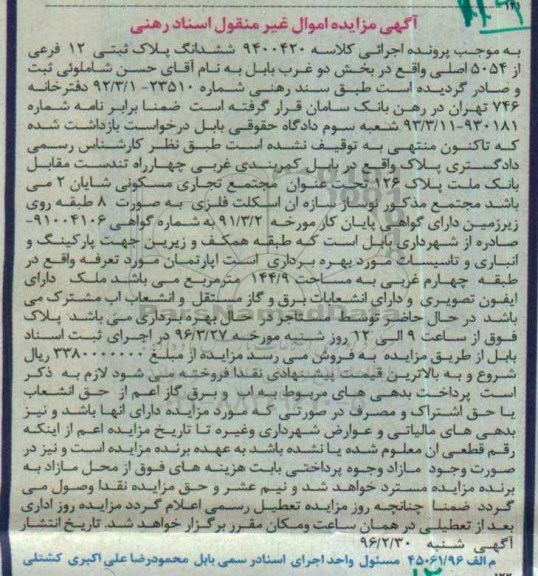 آگهی مزایده اموال غیر منقول اسناد رهنی
به موجب پرونده اجرائی کلاسه ۹۴۰۰۴۲۰ ششدانگ پلاک ثبتی ۱۲ فرعی
از ۵۰۵۴ اصلی واقع در بخش دو غرب بابل به نام آقای حسن شاملوئی ثبت
و صادر گردیده است طبق سند رهنی شماره ۲۳۵۱۰-۹۲/۳/۱ دفترخانه
۷۴۶ تهران در رهن بانک سامان قرار گرفته است ضمنا برابر نامه شماره
۹۳۰۱۸۱-۹۳/۳/۱۱ شعبه سوم دادگاه حقوقی بابل درخواست بازداشت شده
که تاکنون منتهی به توقیف نشده است طبق نظر کارشناس رسمی
دادگستری پلاک واقع در بابل کمربندی غربی چهارراه تندست مقابل
بانک ملت پلاک ۱۲۶ تحت عنوان مجتمع تجاری مسکونی شایان ۲ می
باشد مجتمع مذکور نوساز سازه ان اسکلت فلزی به صورت ۸ طبقه روی
زیرزمین دارای گواهی پایان کار مورخه ۹۱/۳/۲ به شماره گواهی ۹۱۰۰۴۱۰۶-
صادره از شهرداری بابل است که طبقه همکف و زیرین جهت پارکینگ و
انباری و تاسیسات مورد بهره برداری است اپارتمان مورد تعرفه واقع در
طبقه چهارم غربی به مساحت ۱۴۴/۹ مترمربع می باشد ملک دارای
ایفون تصویری و دارای انشعابات برق و گاز مستقل و انشعاب اب مشترک می
باشد در حال حاضر توسط مستاجر در حال بهره برداری می باشد پلاک
فوق از ساعت ۹ الی ۱۲ روز شنبه مورخه ۹۶/۳/۲۷ در اجرای ثبت اسناد
بابل از طریق مزایده به فروش می رسد مزایده از مبلغ ۳۳۸۰۰۰۰۰۰۰ ریال
شروع و به بالاترین قیمت پیشنهادی نقدا فروخته می شود لازم به ذکر
است پرداخت بدهی های مربوط به اب و برق گاز اعم از حق انشعاب
یا حق اشتراک و مصرف در صورتی که مورد مزایده دارای انها باشد و نیز
بدهی های مالیاتی و عوارض شهرداری وغیره تا تاریخ مزایده اعم از اینکه
رقم قطعی ان معلوم شده یا نشده باشد به عهده برنده مزایده است و نیز در
صورت وجود مازاد وجوه پرداختی بابت هزینه های فوق از محل مازاد به
برنده مزایده مسترد خواهد شد و نیم عشر و حق مزایده نقدا وصول می
گردد ضمنا چنانچه روز مزایده تعطیل رسمی اعلام گردد مزایده روز اداری
بعد از تعطیلی در همان ساعت ومکان مقرر برگزار خواهد شد. تاریخ انتشار
آگهی شنبه ۹۶/۲/۳۰
م الف ۴۵۰۶۱/۹۶ مسئول واحد اجرای اسناد رسمی بابل محمودرضا علی اکبری کشتلی